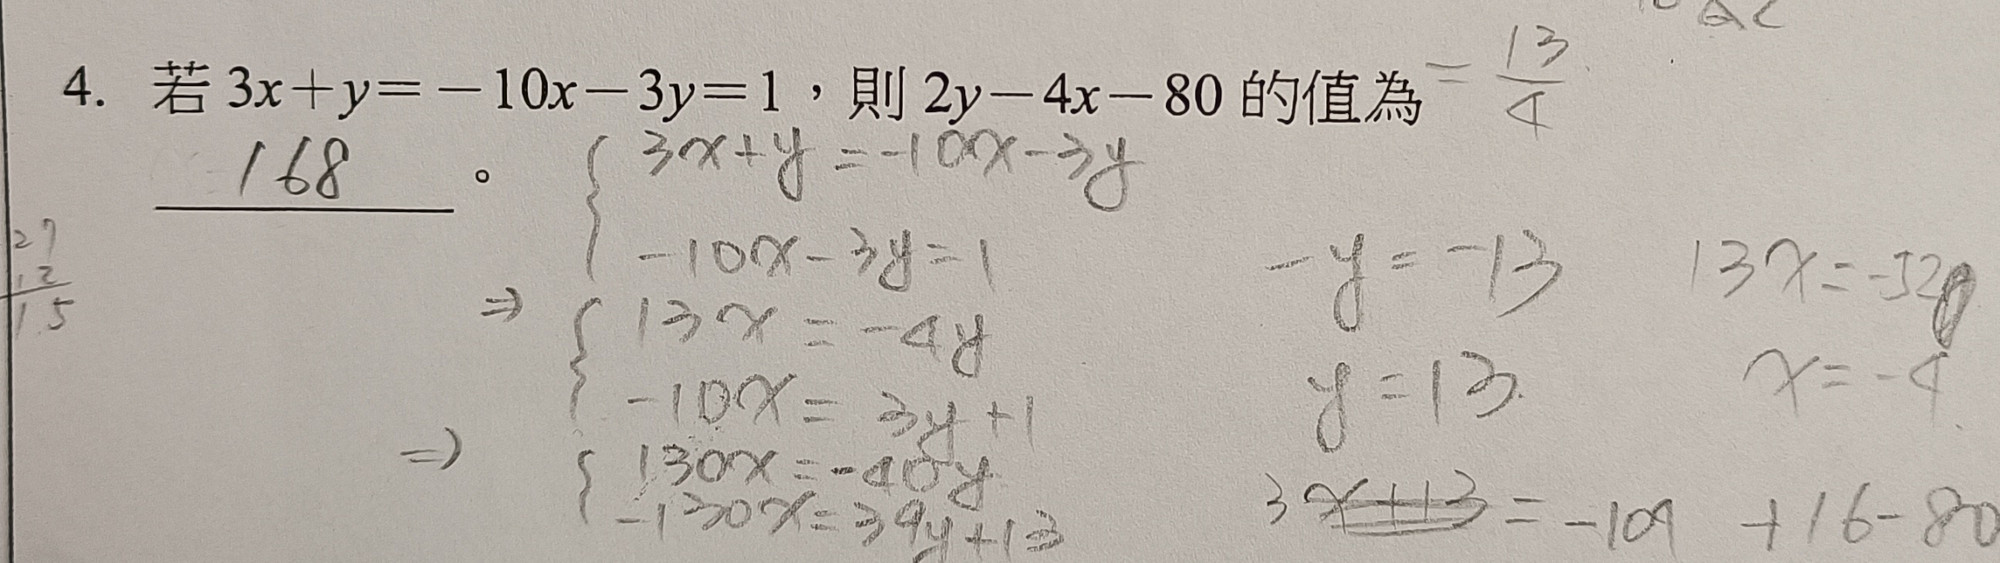 4. 若 3x+y=-10x-3y=1，則 2y-4x-80 的值為
168 。
= 13/4
{ 3x+y=-10x-3y
-10x-3y=1
⇒ { 13x=-4y
-10x=3y+1
⇒ { 130x=-40y
-130x=39y+13
-y=-13
y=13
13x=-52
x=-4
+16-80
27
12
15